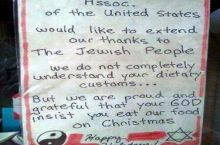 Assoc.
of the United States
would like to extend
our thanks to
The Jewish People
we do not completely
understand your dietary
customs...
But we are proud and
grateful that your GOD
insist you eat our food
on Christmas
Happy